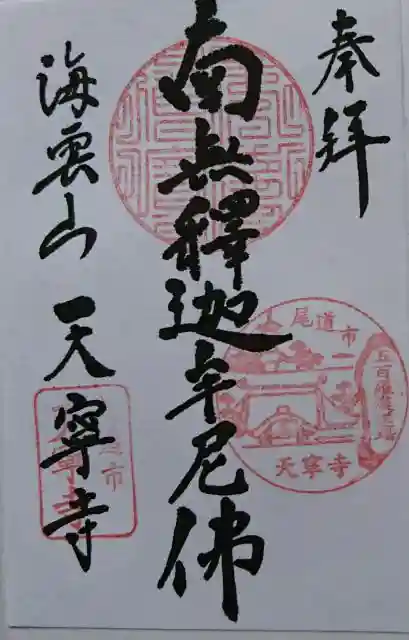 奉拜
南無釋迦牟尼佛
海雲山 天寧寺
尾道市
天寧寺
五百羅漢
天寧寺